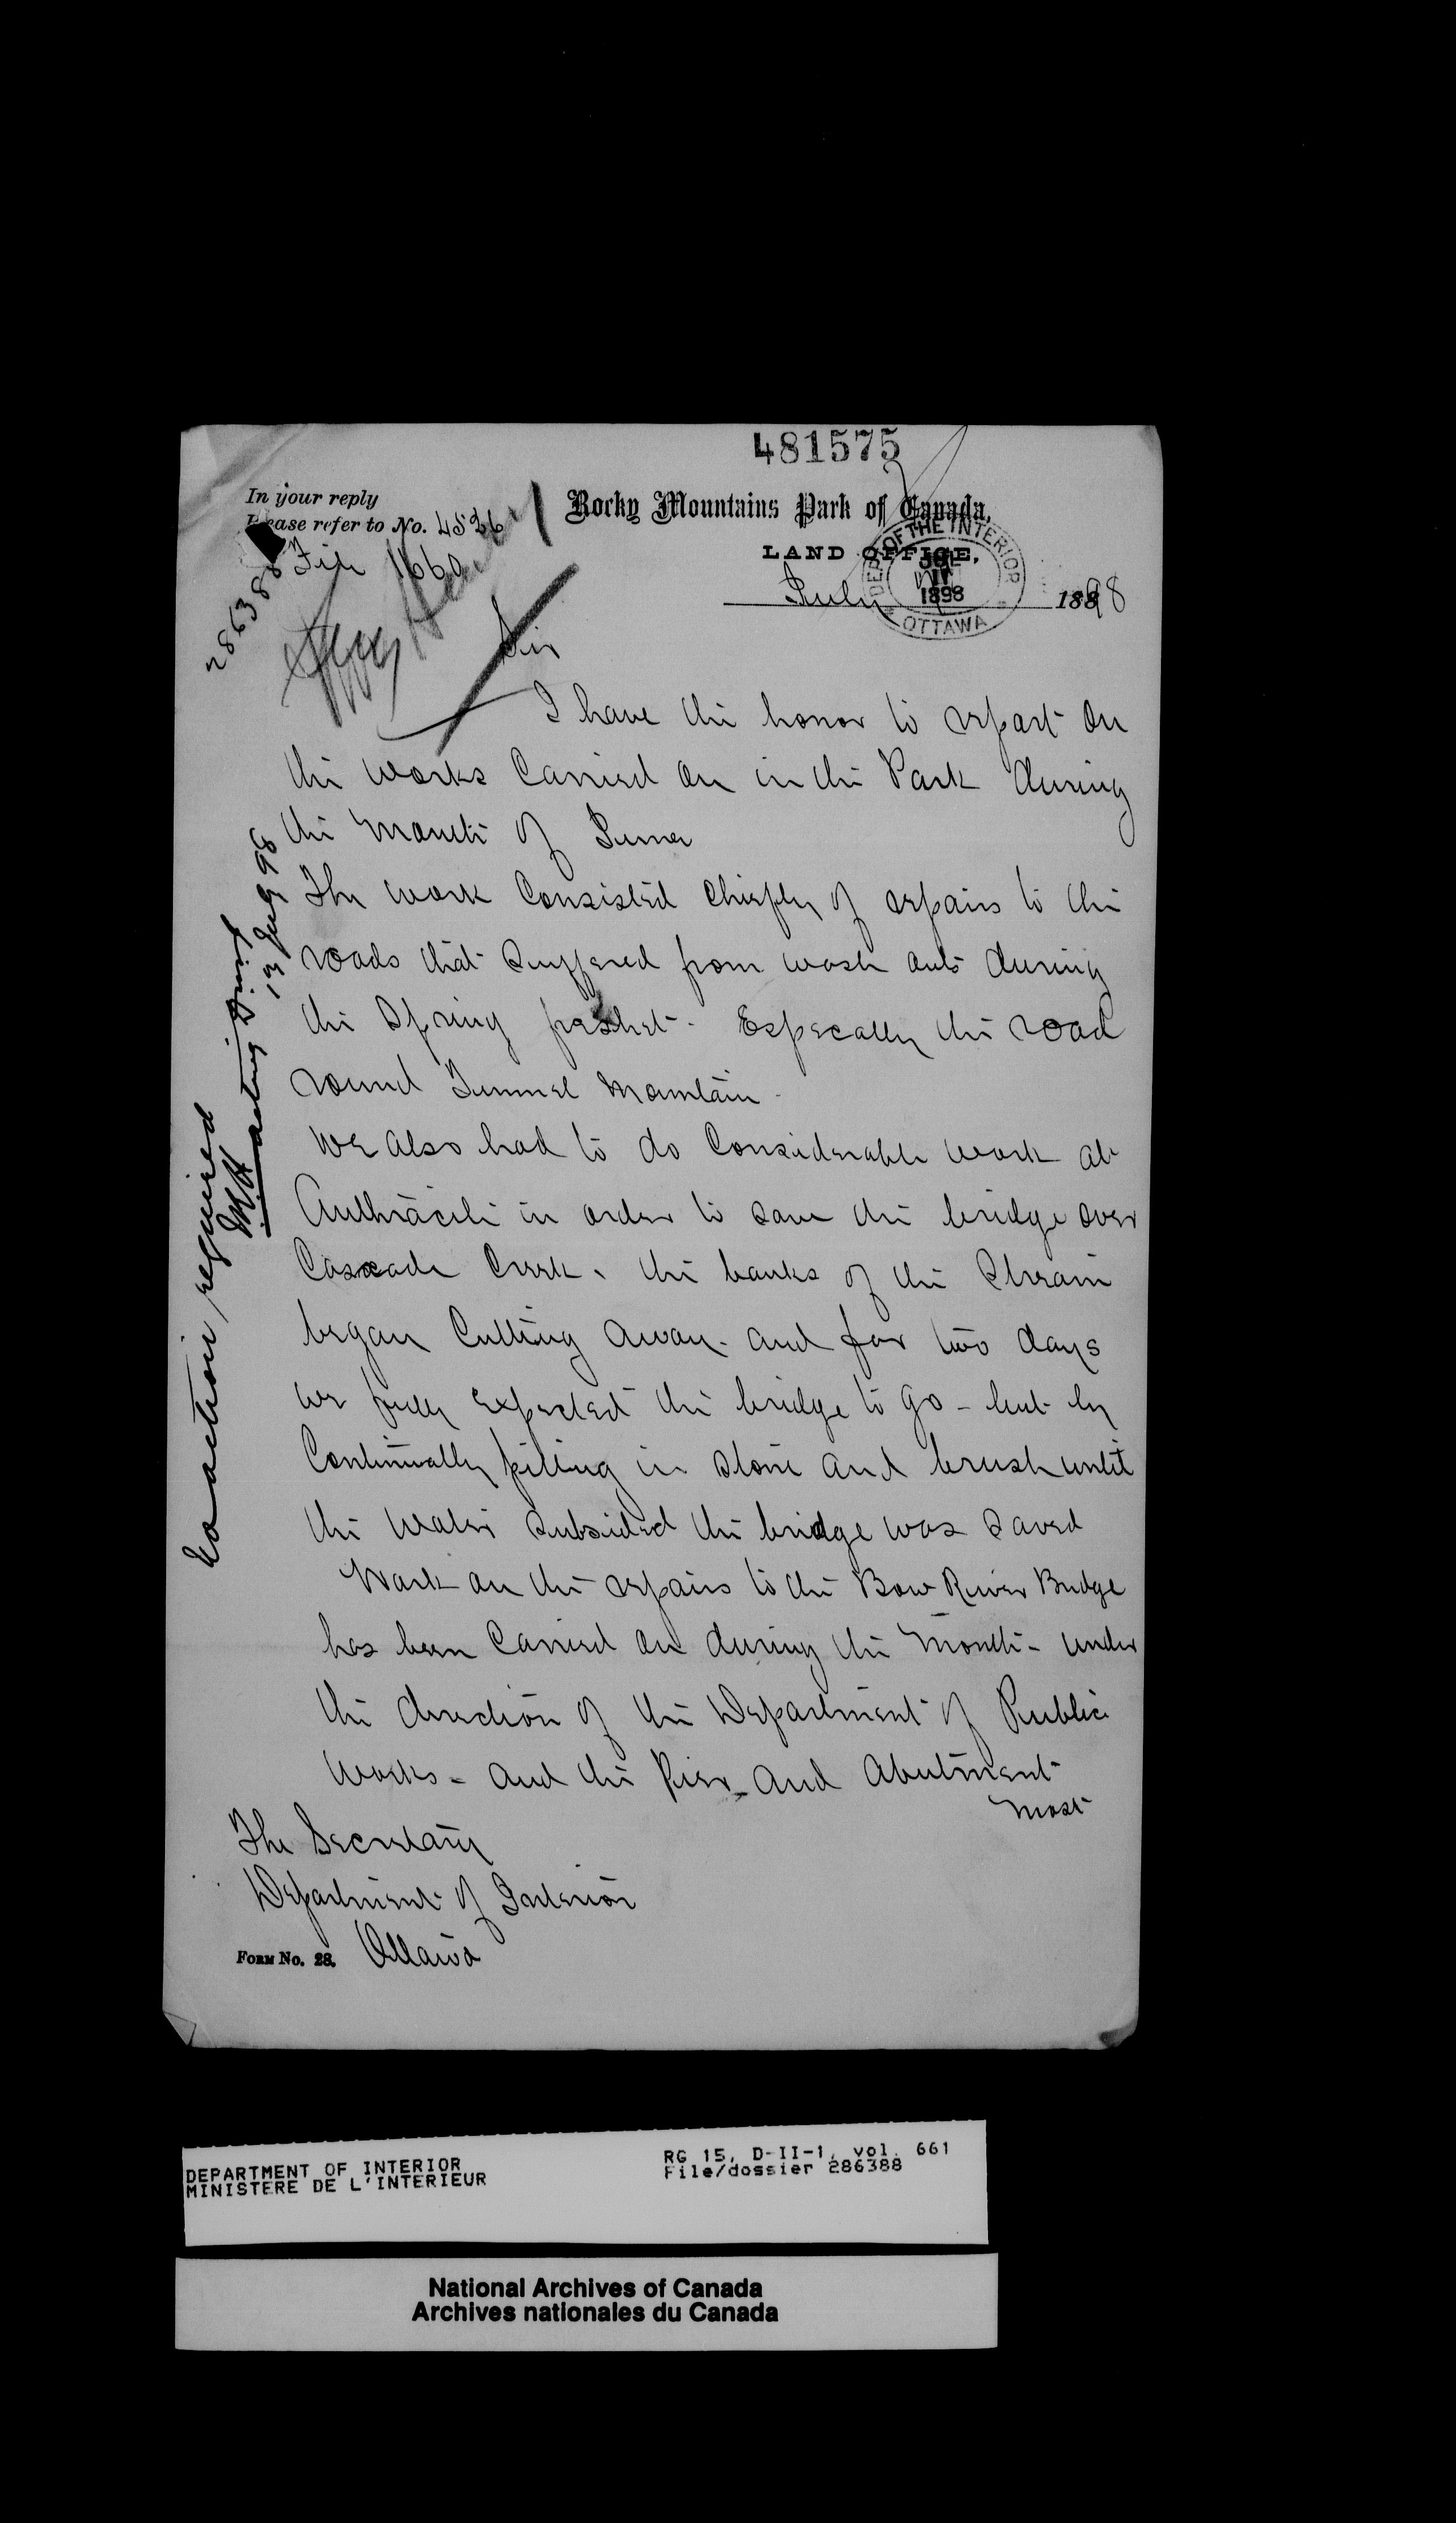 481575
In your reply
Please refer to No. 4526
File 1660
286388
Rocky Mountains Park of Canada,
LAND OFFICE,
DEPT OF THE INTERIOR
JUL
11
1898
OTTAWA
July 1898
Sir
I have the honor to report on
the works carried on in the Park during
the month of June
The work consisted chiefly of repairs to the
roads that suffered from wash outs during
the Spring freshet. Especially the road
round Tunnel Mountain.
We also had to do considerable work at
Anthracite in order to save the bridge over
Cascade Creek. the banks of the Stream
began cutting away - and for two days
we fully expected the bridge to go - but by
continually filling in stone and brush until
the water subsided the bridge was saved
Work on the repairs to the Bow River Bridge
has been carried on during the month - under
the direction of the Department of Public
Works - and the Pier and Abutment
most
The Secretary
Department of Interior
Ottawa
FORM No. 28.
No action required
acting
13 July 98
DEPARTMENT OF INTERIOR
MINISTERE DE L'INTERIEUR
RG 15, D-II-1, vol. 661
File/dossier 286388
National Archives of Canada
Archives nationales du Canada